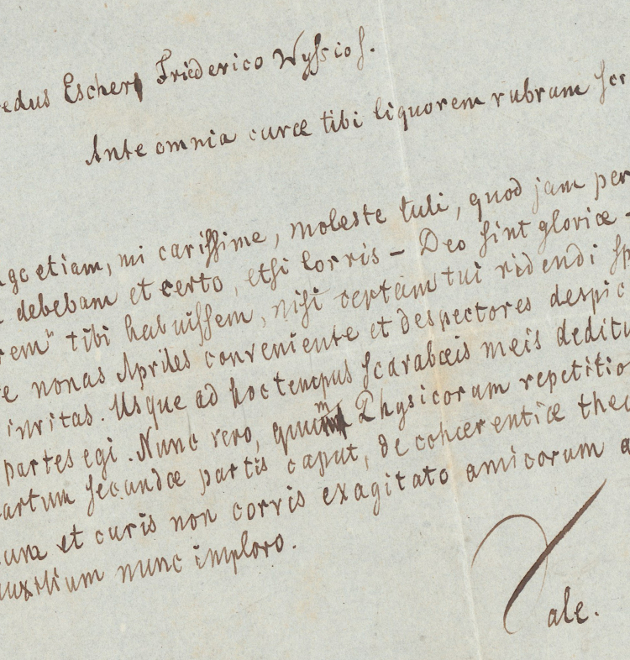 edus Eschers Friederico Wyssio s.
Ante omnia curæ tibi liquorem rubrum
ego etiam, mi carissime, moleste tuli, quod jam per
debebam et certo, etsi corris – Deo sint gloriæ –
rem" tibi habuissem, nisi certam tui ridendi sp
e nonas Apriles conveniente et despectores despic
invitas. Usque ad hoc tempus scarabæis meis deditu
partes egi. Nunc vero, quum Physicorum repetitio
artum secundæ partis caput, de cohærentiæ theo
cum et curis non corvis exagitato amicorum a
auxilium nunc imploro.
Vale.